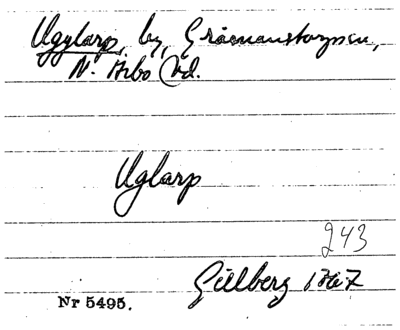 Ugglarp, by, Grönanstorpssn,
N. Åsbo hd.
Uglarp
243
Gillberg 1767
Nr 5495.